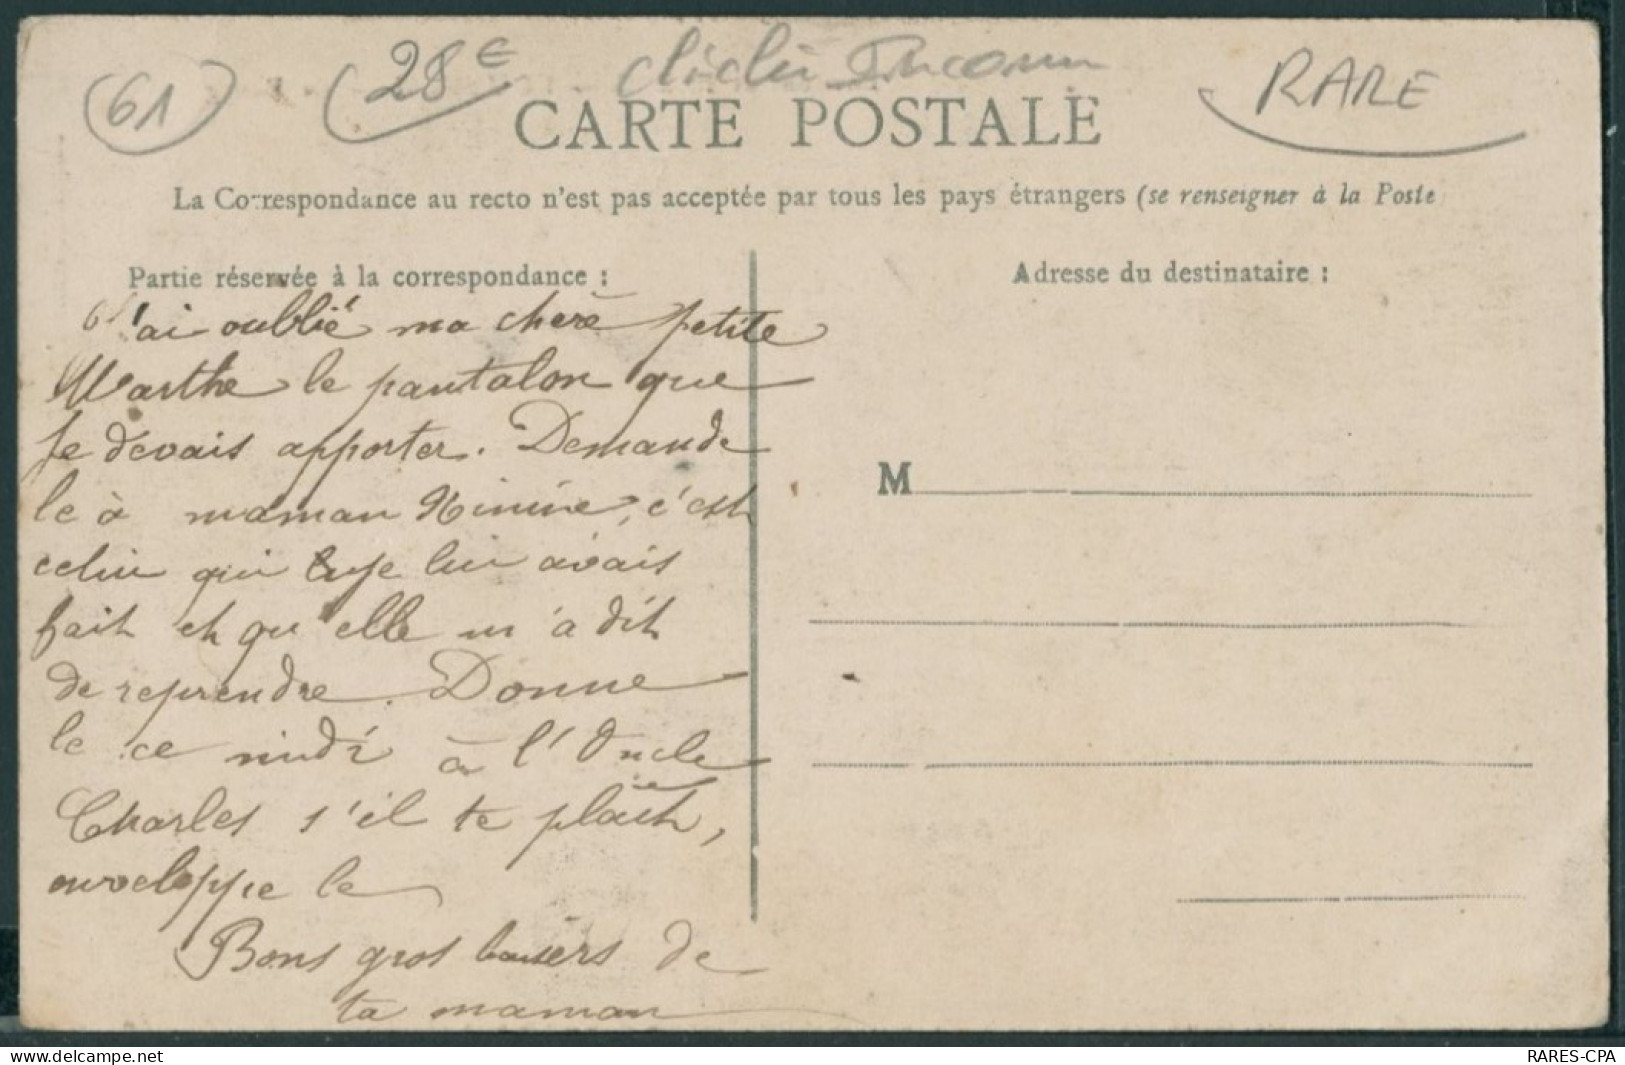 61
28€
cliché Inconnu
RARE
CARTE POSTALE
La Correspondance au recto n'est pas acceptée par tous les pays étrangers (se renseigner à la Poste
Partie réservée à la correspondance :
Adresse du destinataire :
M
J'ai oublié ma chère petite
Marthe le pantalon que
je devais apporter. Demande
le à maman Ninine, c'est
celui qui je lui avais
fait et qu'elle m'a dit
de reprendre. Donne
le ce midi à l'Oncle
Charles s'il te plaît,
enveloppe le
Bons gros baisers de
ta maman
delcampe.net
RARES-CPA